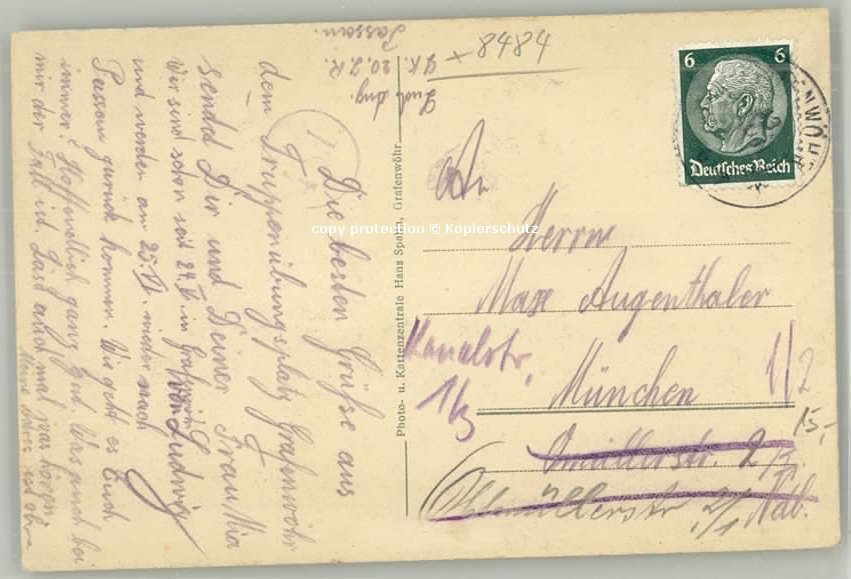 Die besten Grüße aus
dem Truppenübungsplatz Grafenwöhr
sendet Dir und Deiner Frau Mia
Ludwig
Wir sind schon seit 24.V. in
und werden am 25.VI. wieder nach
Passau zurück kommen. Wie geht es Euch
immer? Hoffentlich ganz gut. Was auch bei
mir der Fall ist. Lasst auch mal was hören
Passau.
20. J.R.
Photo- u. Kartenzentrale Hans Spahn, Grafenwöhr
x 8484
6 6
Deutsches Reich
An
Herrn
Max Augenthaler
Kanalstr.
1/3
München
1/2
15,-
2/1
copy protection © Kopierschutz